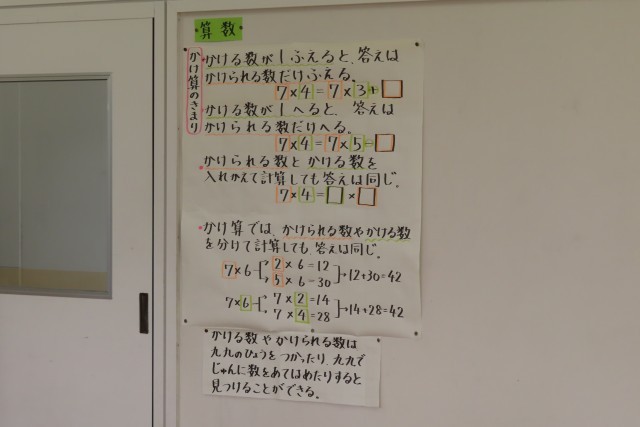 算数
かけ算のきまり
かける数が1ふえると、答えは
かけられる数だけふえる。
7×4=7×3+□
かける数が1へると、答えは
かけられる数だけへる。
7×4=7×5-□
かけられる数とかける数を
入れかえて計算しても答えは同じ。
7×4=□×□
かけ算では、かけられる数やかける数
を分けて計算しても、答えは同じ。
7×6 2×6=12
5×6=30 12+30=42
7×6 7×2=14
7×4=28 14+28=42
かける数やかけられる数は
九九のひょうをつかったり、九九で
じゅんに数をあてはめたりすると
見つけることができる。